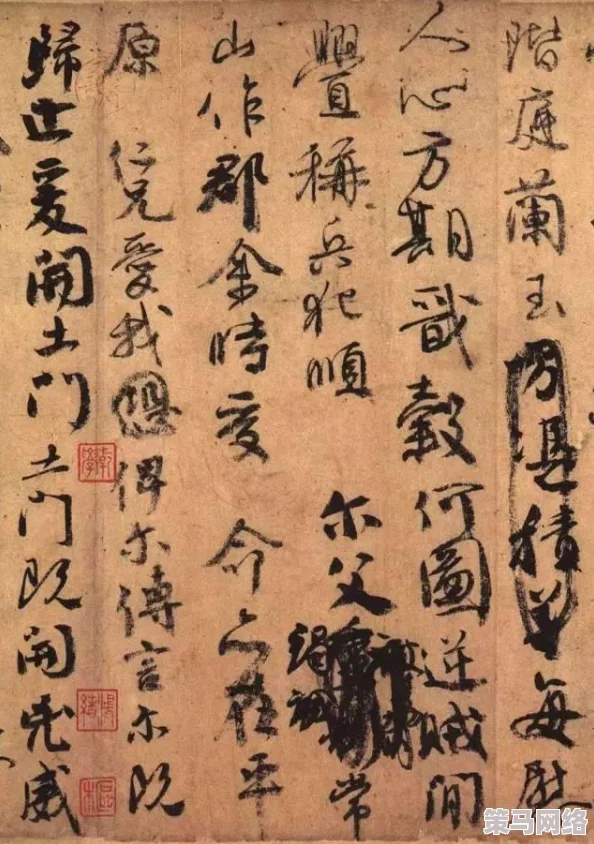 階庭蘭玉方憑積善每慰
人心方期戩穀何圖逆賊閒
釁稱兵犯順 尓父常
山作郡余時受 命亦在平
原 仁兄愛我恐俾尓傳言尓既
歸止爰開土門土門既開凶威
策马网络